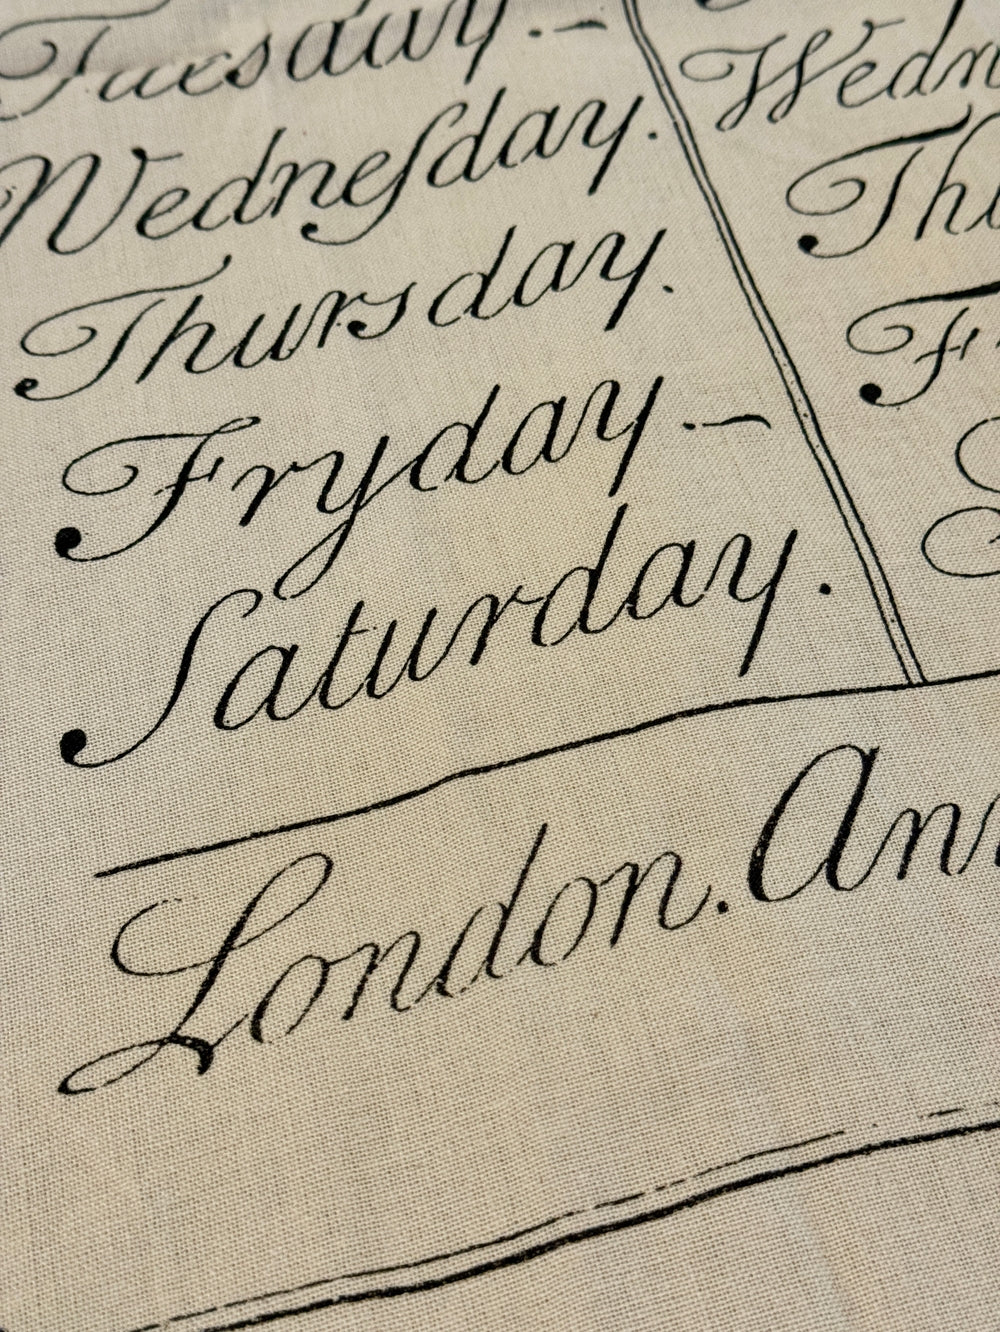 Tuesday. –
Wedneſday.
Thursday.
Fryday. –
Saturday.
London.